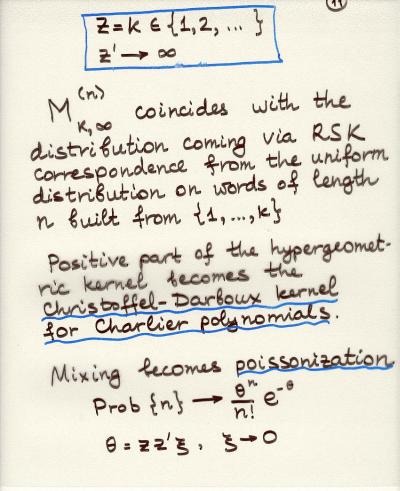 11
z = k ∈ {1, 2, ... }
z' → ∞
M^{(n)}_{k, ∞} coincides with the
distribution coming via RSK
correspondence from the uniform
distribution on words of length
n built from {1, ..., k}
Positive part of the hypergeomet-
ric kernel becomes the
Christoffel-Darboux kernel
for Charlier polynomials.
Mixing becomes poissonization
Prob {n} → θ^n/n! e^{-θ}
θ = z z' ξ, ξ → 0